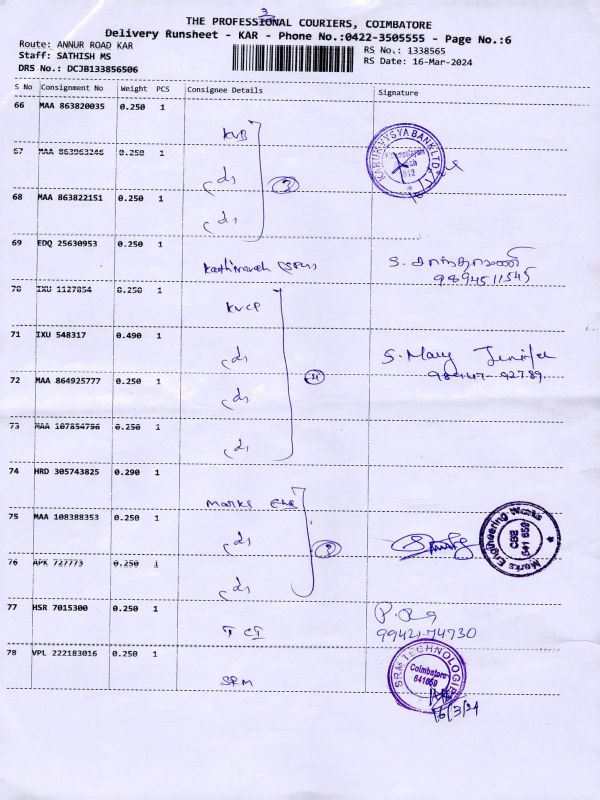 3
THE PROFESSIONAL COURIERS, COIMBATORE
Delivery Runsheet - KAR - Phone No.:0422-3505555 - Page No.:6
Route: ANNUR ROAD KAR
Staff: SATHISH MS
DRS No.: DCJB133856506
RS No.: 1338565
RS Date: 16-Mar-2024
S No Consignment No Weight PCS Consignee Details Signature
66 MAA 863820035 0.250 1
KVB
KARUR VYSYA BANK LTD
67 MAA 863963246 0.250 1
3
68 MAA 863822151 0.250 1
69 EDQ 25630953 0.250 1
9894511545
70 IXU 1127854 0.250 1
KVCP
71 IXU 548317 0.490 1
S. Mary Jenifer
98447-92789
4
72 MAA 864925777 0.250 1
73 MAA 107854796 0.250 1
74 HRD 305743825 0.290 1
Marks Eng
75 MAA 108388353 0.250 1
3
Marks Engineering Works
CBE
641 659
76 APK 727773 0.250 1
77 HSR 7015300 0.250 1
TCI
9942174730
78 VPL 222183016 0.250 1
SRM
SRM TECHNOLOGIES
Coimbatore
641659
16/3/24